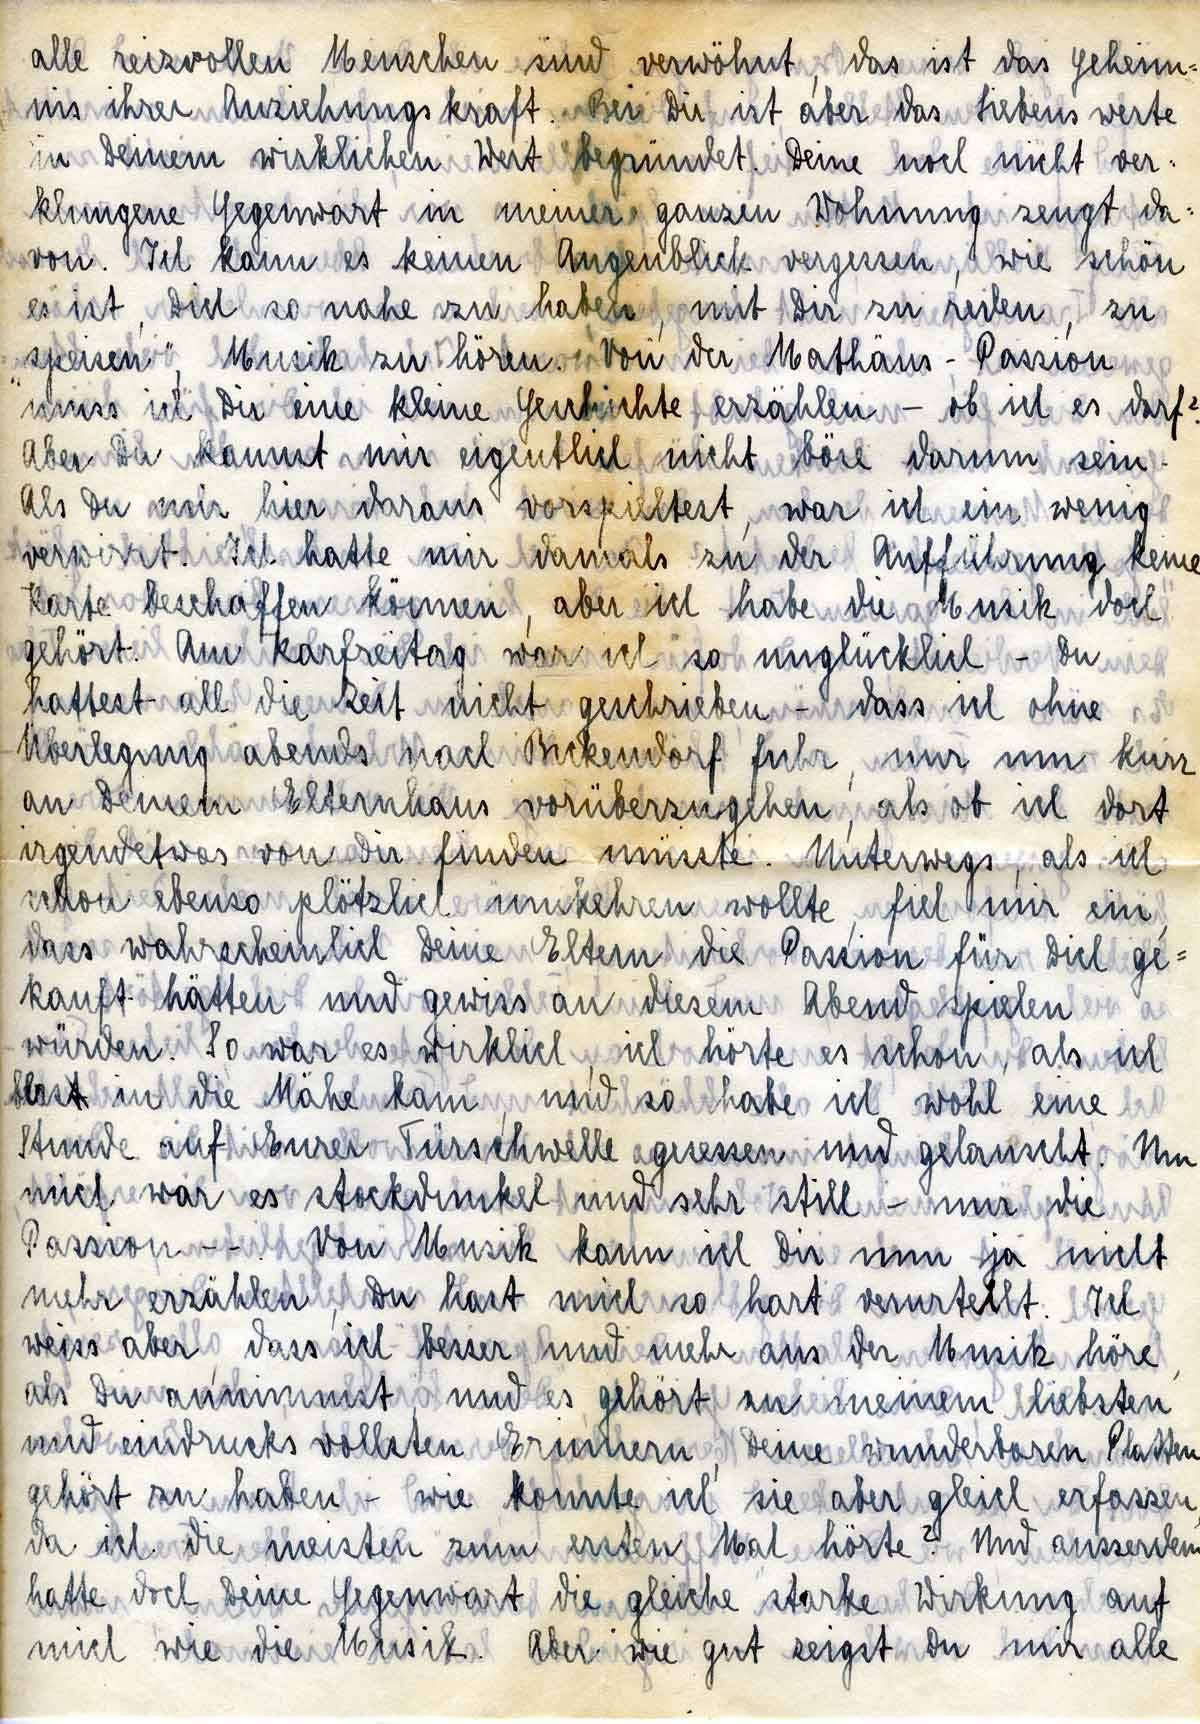 alle reizvollen Menschen sind verwöhnt, das ist das Geheim=
nis ihrer Anziehungskraft. Bei Dir ist aber das Liebenswerte
in Deinem wirklichen Wert begründet. Deine noch nicht ver=
klungene Gegenwart in meiner ganzen Wohnung zeugt da=
von. Ich kann es keinen Augenblick vergessen, wie schön
es ist, Dich so nahe zu haben, mit Dir zu reden, zu
"speisen", Musik zu hören. Von der Mathäus-Passion
muss ich Dir eine kleine Geschichte erzählen - ob ich es darf?
Aber Du kannst mir eigentlich nicht böse darum sein.
Als Du mir hier daraus vorspieltest, war ich ein wenig
verwirrt. Ich hatte mir damals zu der Aufführung keine
Karte beschaffen können, aber ich habe die Musik doch
gehört. Am Karfreitag war ich so unglücklich - Du
hattest all die Zeit nicht geschrieben - dass ich ohne
Überlegung abends nach Bickendorf fuhr, nur um kurz
an Deinem Elternhaus vorüberzugehen, als ob ich dort
irgendetwas von Dir finden müsste. Unterwegs, als ich
schon ebenso plötzlich umkehren wollte, fiel mir ein,
dass wahrscheinlich Deine Eltern die Passion für Dich ge=
kauft hätten und gewiss an diesem Abend spielen
würden. So war es wirklich, ich hörte es schon, als ich
erst in die Nähe kam, und so habe ich wohl eine
Stunde auf Eurer Türschwelle gesessen und gelauscht. Um
mich war es stockdunkel und sehr still - nur die
Passion --. Von Musik kann ich Dir nun ja nicht
mehr erzählen, Du hast mich so hart verurteilt. Ich
weiss aber, dass ich besser und mehr aus der Musik höre,
als Du annimmst, und es gehört zu meinem liebsten
und eindrucksvollsten Erinnern, Deine wunderbaren Platten
gehört zu haben - wie konnte ich sie aber gleich erfassen,
da ich die meisten zum ersten Mal hörte? Und ausserdem
hatte doch Deine Gegenwart die gleiche starke Wirkung auf
mich wie die Musik. Aber wie gut zeigst Du mir alle